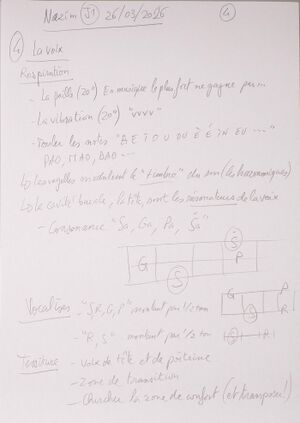 Nazim J1 26/03/2026 4
4 La voix
Respiration
- La paille (20") En musique le plus fort ne gagne pas...
- La vibration (20") "vvvv"
- les notes "A E I O U OU È É IN EU ..."
PAO, MAO, BAO ...
↳ Les voyelles modulent le "timbre" du son (les harmoniques)
↳ la cavité buccale, la tête, sont les résonateurs de la voix
- Consonance "Sa, Ga, Pa, Ṡa"
Ṡ
G P
S
Vocalises - "S R, G, P" montant par 1/2 ton
G P
S R
- "R, S" montant par 1/2 ton
S R
Tessiture - Voix de tête et de poitrine
- Zone de transition
- Chercher la zone de confort (et transposer!)